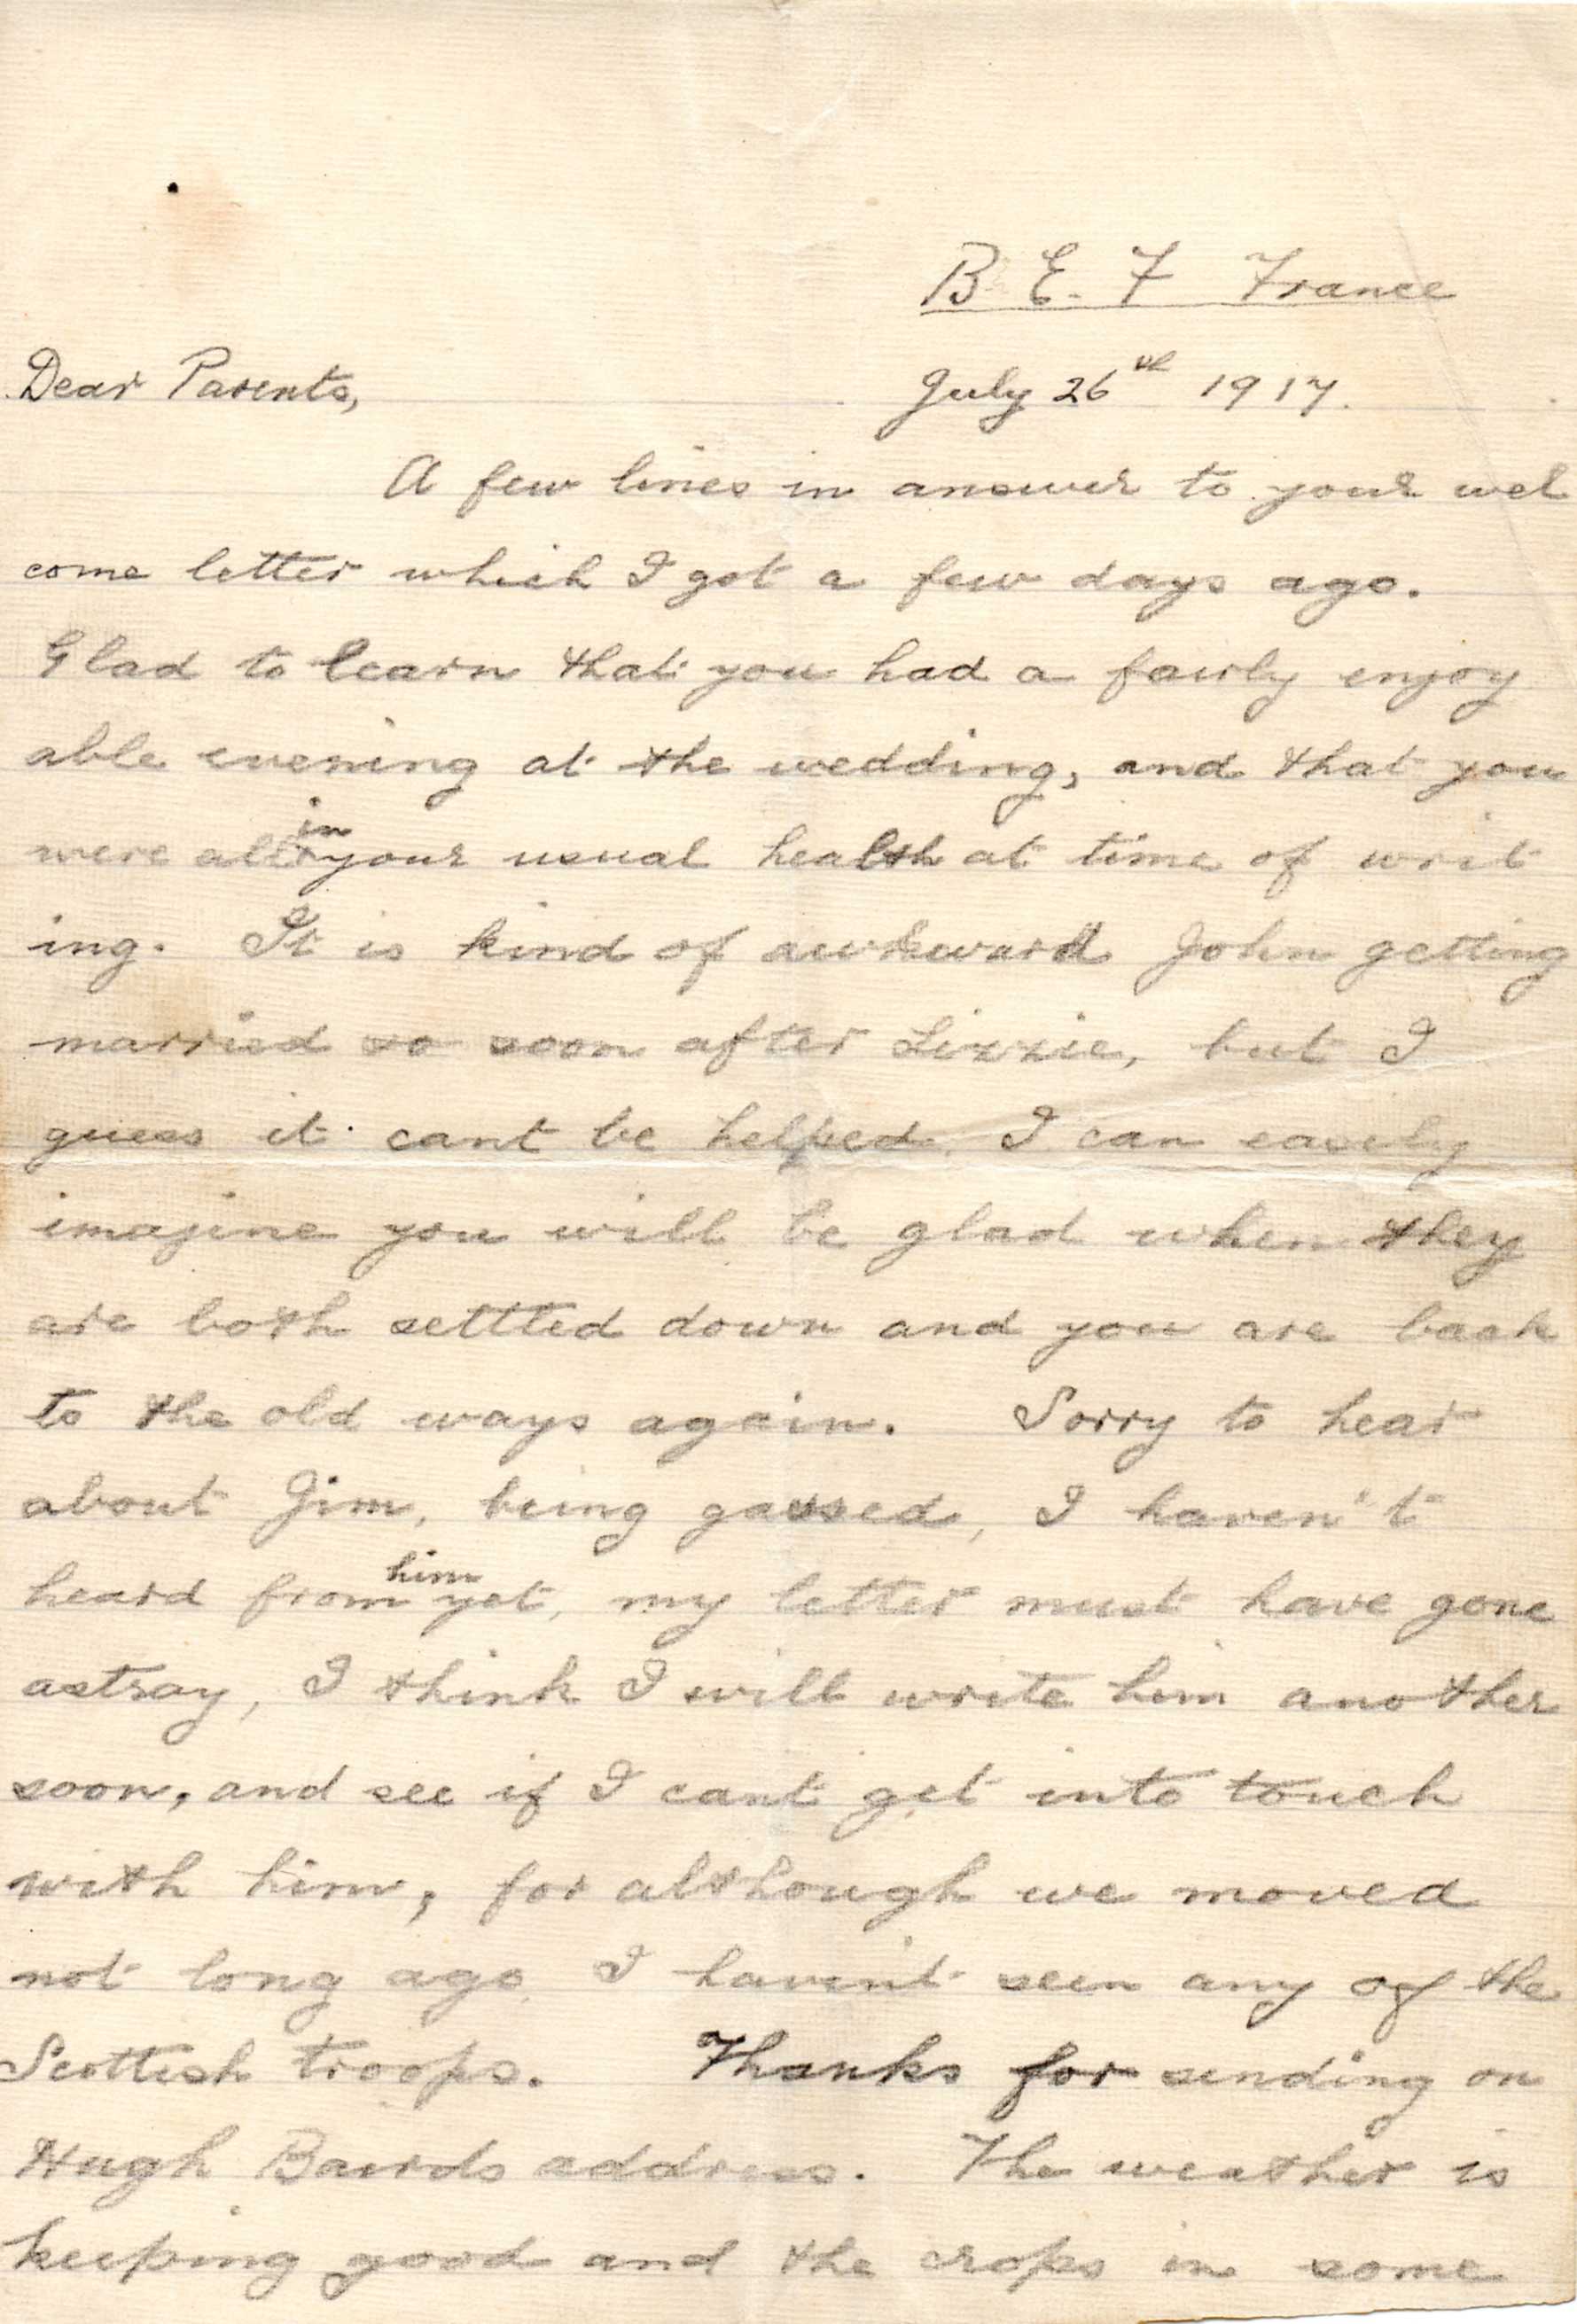 B E. F France
Dear Parents,
July 26th 1917.
A few lines in answer to your wel
come letter which I got a few days ago.
Glad to learn that you had a fairly enjoy
able evening at the wedding, and that you
were all in your usual health at time of writ
ing. It is kind of awkward John getting
married so soon after Lizzie, but I
guess it cant be helped. I can easily
imagine you will be glad when they
are both settled down and you are back
to the old ways again. Sorry to hear
about Jim, being gassed, I haven't
heard from him yet, my letter must have gone
astray, I think I will write him another
soon, and see if I cant get into touch
with him, for although we moved
not long ago I havent seen any of the
Scottish troops. Thanks for sending on
Hugh Bairds address. The weather is
keeping good and the crops in some